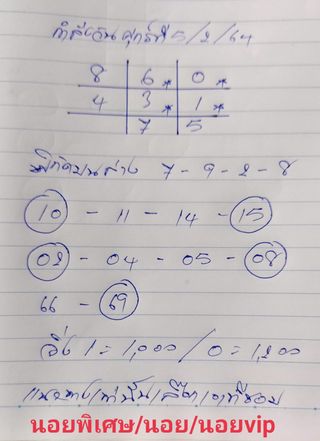 กำลังวันศุกร์ที่ 5/2/64
8 6* 0*
4 3* 1*
7 5
พิกัดบนล่าง 7-9-2-8
10 - 11 - 14 - 15
02 - 04 - 05 - 08
66 - 69
วิ่ง 1 = 1,000 / 0 = 1,200
แนวทางเท่านั้น
นอยพิเศษ/นอย/นอยvip